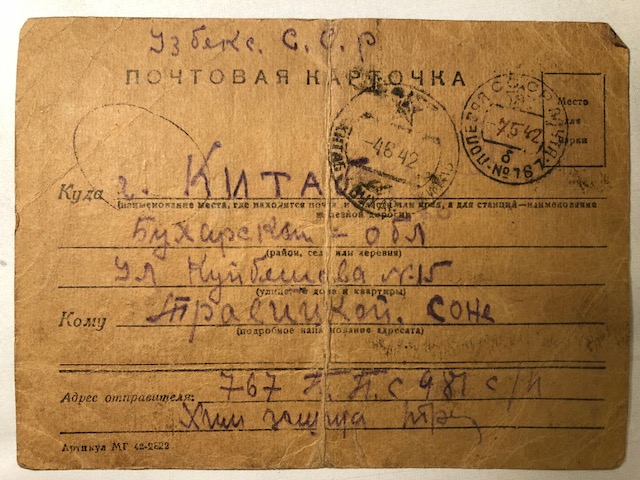 Узбекс. С. С. Р
ПОЧТОВАЯ КАРТОЧКА
Место
для
марки
-7.5.42
-4.6.42
Куда г. КИТАБ
(наименование места, где находится почта и
а для станций—наименование
железной дороги)
Бухарская - обл
(район, село или деревня)
Ул Куйбешева №15
(улица, дома и квартиры)
Кому Травицкой. Соне
(подробное наименование адресата)
Адрес отправителя: 767 П. П. с 981 с/п
Хим защита
Артикул МГ 42-2822